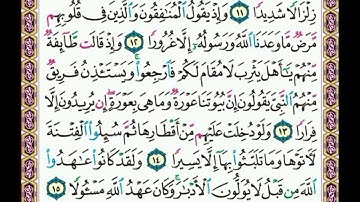 زِلْزَالًا شَدِيدًا ۝١١ وَإِذْ يَقُولُ ٱلْمُنَٰفِقُونَ وَٱلَّذِينَ فِى قُلُوبِهِم
مَّرَضٌ مَّا وَعَدَنَا ٱللَّهُ وَرَسُولُهُۥٓ إِلَّا غُرُورًا ۝١٢ وَإِذْ قَالَت طَّآئِفَةٌ
مِّنْهُمْ يَٰٓأَهْلَ يَثْرِبَ لَا مُقَامَ لَكُمْ فَٱرْجِعُوا۟ ۚ وَيَسْتَـْٔذِنُ فَرِيقٌ
مِّنْهُمُ ٱلنَّبِىَّ يَقُولُونَ إِنَّ بُيُوتَنَا عَوْرَةٌ وَمَا هِىَ بِعَوْرَةٍ ۖ إِن يُرِيدُونَ إِلَّا
فِرَارًا ۝١٣ وَلَوْ دُخِلَتْ عَلَيْهِم مِّنْ أَقْطَارِهَا ثُمَّ سُئِلُوا۟ ٱلْفِتْنَةَ
لَـَٔاتَوْهَا وَمَا تَلَبَّثُوا۟ بِهَآ إِلَّا يَسِيرًا ۝١٤ وَلَقَدْ كَانُوا۟ عَٰهَدُوا۟
ٱللَّهَ مِن قَبْلُ لَا يُوَلُّونَ ٱلْأَدْبَٰرَ ۚ وَكَانَ عَهْدُ ٱللَّهِ مَسْـُٔولًا ۝١٥